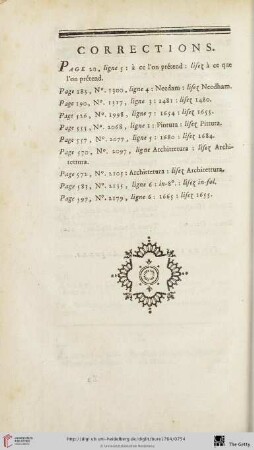 CORRECTIONS.
PAGE 20, ligne 5 : à ce l'on prétend : lisez à ce que
l'on prétend.
Page 285, N°. 1300, ligne 4 : Needam : lisez Needham.
Page 290, N°. 1317, ligne 3 : 1481 : lisez 1480.
Page 526, N°. 1998, ligne 7 : 1654 : lisez 1655.
Page 553, N°. 2068, ligne 1 : Pintura : lisez Pittura.
Page 557, N°. 2077, ligne 5 : 1680 : lisez 1684.
Page 570, N°. 2097, ligne Architetura : lisez Archi-
tettura.
Page 572, N°. 2105 : Architetura : lisez Architettura.
Page 583, N°. 2135, ligne 6 : in-8°. : lisez in-fol.
Page 597, N°. 2179, ligne 6 : 1665 : lisez 1655.
http://digi.ub.uni-heidelberg.de/diglit/bure1764/0754
© Universitätsbibliothek Heidelberg
The Getty